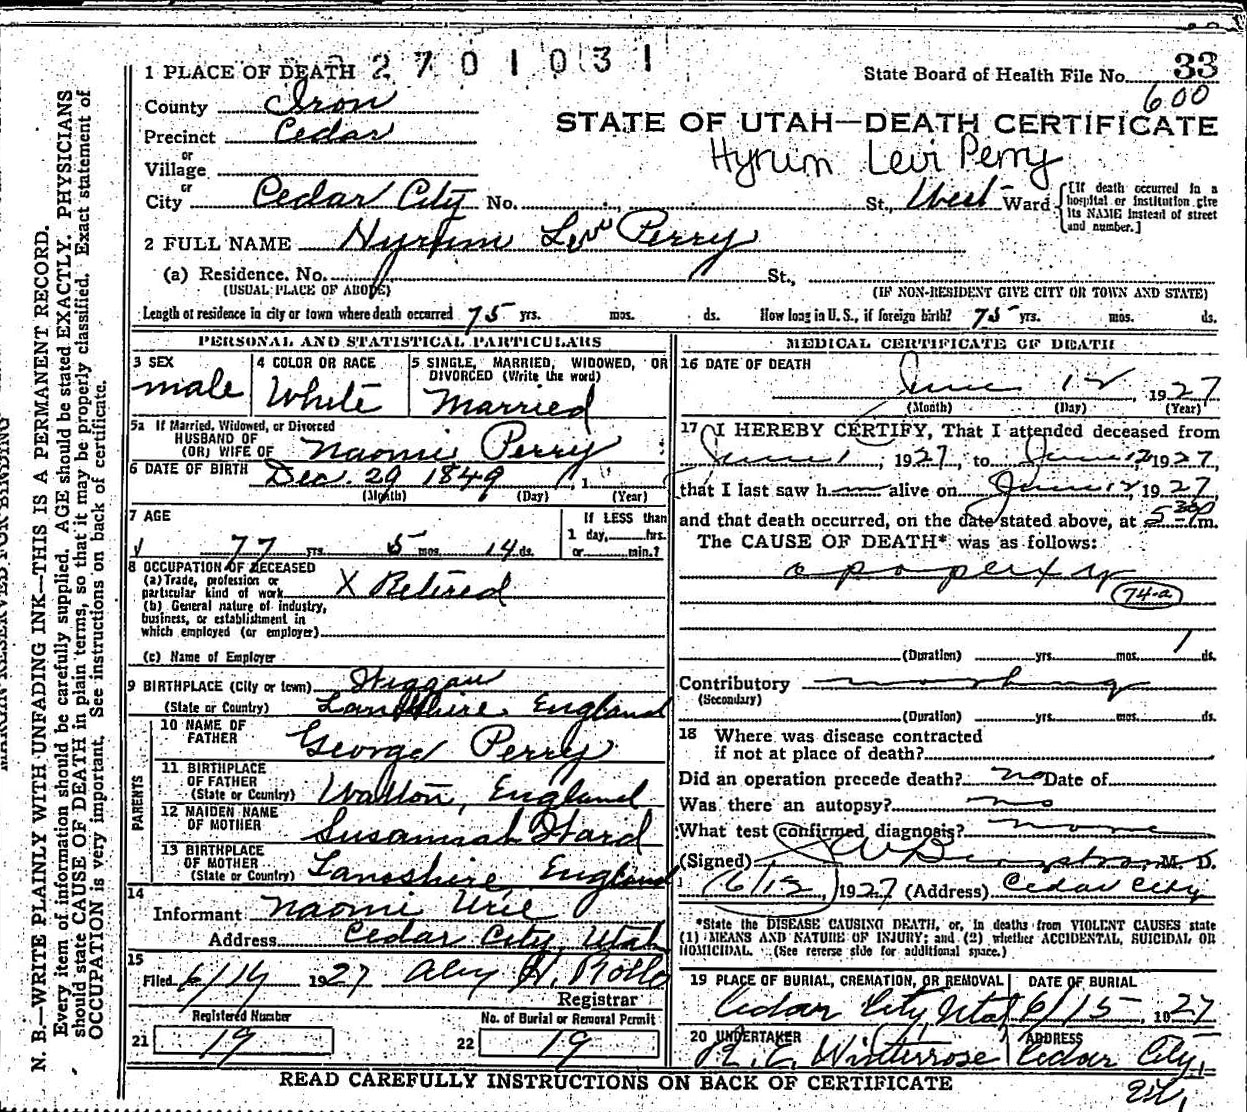 2701031
1 PLACE OF DEATH
State Board of Health File No. 33
600
County Iron
Precinct Cedar
or
Village
or
STATE OF UTAH—DEATH CERTIFICATE
Hyrum Levi Perry
City Cedar City No. St., West Ward
[If death occurred in a hospital or institution give its NAME instead of street and number.]
2 FULL NAME Hyrum Levi Perry
(a) Residence. No. St.,
(USUAL PLACE OF ABODE) (IF NON-RESIDENT GIVE CITY OR TOWN AND STATE)
Length of residence in city or town where death occurred 75 yrs. mos. ds. How long in U. S., if foreign birth? 75 yrs. mos. ds.
PERSONAL AND STATISTICAL PARTICULARS
3 SEX
male
4 COLOR OR RACE
White
5 SINGLE, MARRIED, WIDOWED, OR DIVORCED (Write the word)
Married
5a If Married, Widowed, or Divorced
HUSBAND OF
(OR) WIFE OF Naomi Perry
6 DATE OF BIRTH Dec. 29 1849, 1
(Month) (Day) (Year)
7 AGE
77 yrs. 5 mos. 14 ds.
If LESS than
1 day, hrs.
or min.?
8 OCCUPATION OF DECEASED
(a) Trade, profession or
particular kind of work X Retired
(b) General nature of industry,
business, or establishment in
which employed (or employer)
(c) Name of Employer
9 BIRTHPLACE (City or town) Wiggan
(State or Country) Lancshire, England
PARENTS
10 NAME OF
FATHER George Perry
11 BIRTHPLACE
OF FATHER
(State or Country) Walton, England
12 MAIDEN NAME
OF MOTHER Susannah Ward
13 BIRTHPLACE
OF MOTHER
(State or Country) Lancshire, England
14
Informant Naomi Urie
Address Cedar City, Utah
15
Filed 6/14 1927 H. Rollo
Registrar
Registered Number
21 19
No. of Burial or Removal Permit
22 19
MEDICAL CERTIFICATE OF DEATH
16 DATE OF DEATH
June 12, 1927
(Month) (Day) (Year)
17 I HEREBY CERTIFY, That I attended deceased from
June 1, 1927, to June 12 1927,
that I last saw h m alive on June 12, 1927,
and that death occurred, on the date stated above, at 5 30 m.
The CAUSE OF DEATH* was as follows:
apoperxy
74-a
(Duration) yrs. mos. 1 ds.
Contributory nothing
(Secondary)
(Duration) yrs. mos. ds.
18 Where was disease contracted
if not at place of death?
Did an operation precede death? no Date of
Was there an autopsy? no
What test confirmed diagnosis? none
(Signed) M. D.
6/12, 1927 (Address) Cedar City
*State the DISEASE CAUSING DEATH, or, in deaths from VIOLENT CAUSES state
(1) MEANS AND NATURE OF INJURY; and (2) whether ACCIDENTAL, SUICIDAL OR
HOMICIDAL. (See reverse side for additional space.)
19 PLACE OF BURIAL, CREMATION, OR REMOVAL
Cedar City Utah
DATE OF BURIAL
6/15, 1927
20 UNDERTAKER
C. Winterrose
ADDRESS
Cedar City,
READ CAREFULLY INSTRUCTIONS ON BACK OF CERTIFICATE
MARGIN RESERVED FOR BINDING
N. B.—WRITE PLAINLY WITH UNFADING INK—THIS IS A PERMANENT RECORD.
Every item of information should be carefully supplied. AGE should be stated EXACTLY. PHYSICIANS
should state CAUSE OF DEATH in plain terms, so that it may be properly classified. Exact statement of
OCCUPATION is very important. See instructions on back of certificate.